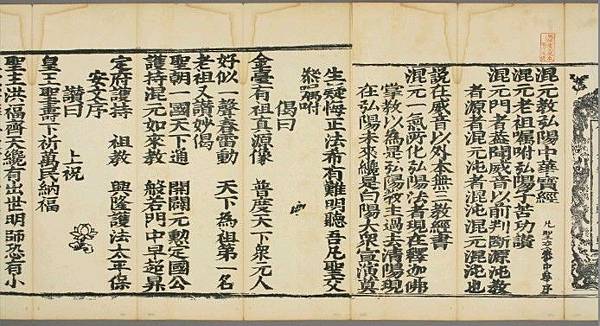 混元教弘陽中華寶經
凡聖交參中華序
混元老祖嘱咐弘陽子苦功讚
混元門者蓋聞威音以前判斷源沌教
者源者混元沌者混沌混元沌也
說在威音以外本無三教經書
混元一氣所化弘陽法者現在釋迦佛
掌教以為是弘陽教主過去清陽現
在弘陽未來纔是白陽大衆宣演莫
生疑悔正法布有難明聽吾凡聖交
叅嘱咐
偈曰
金臺有祖真源像 普度天下衆元人
好似一聲春雷動 天下為祖第一名
老祖又讚妙偈
聖朝一國天下通 開闢元勲定國公
護持混元如來教 般若門中早超昇
定府護持 祖教 興隆護法太平保
安文序
讚曰 上祝
皇王聖壽下祈萬民納福
聖主洪福齊天纔有出世明師恐有小